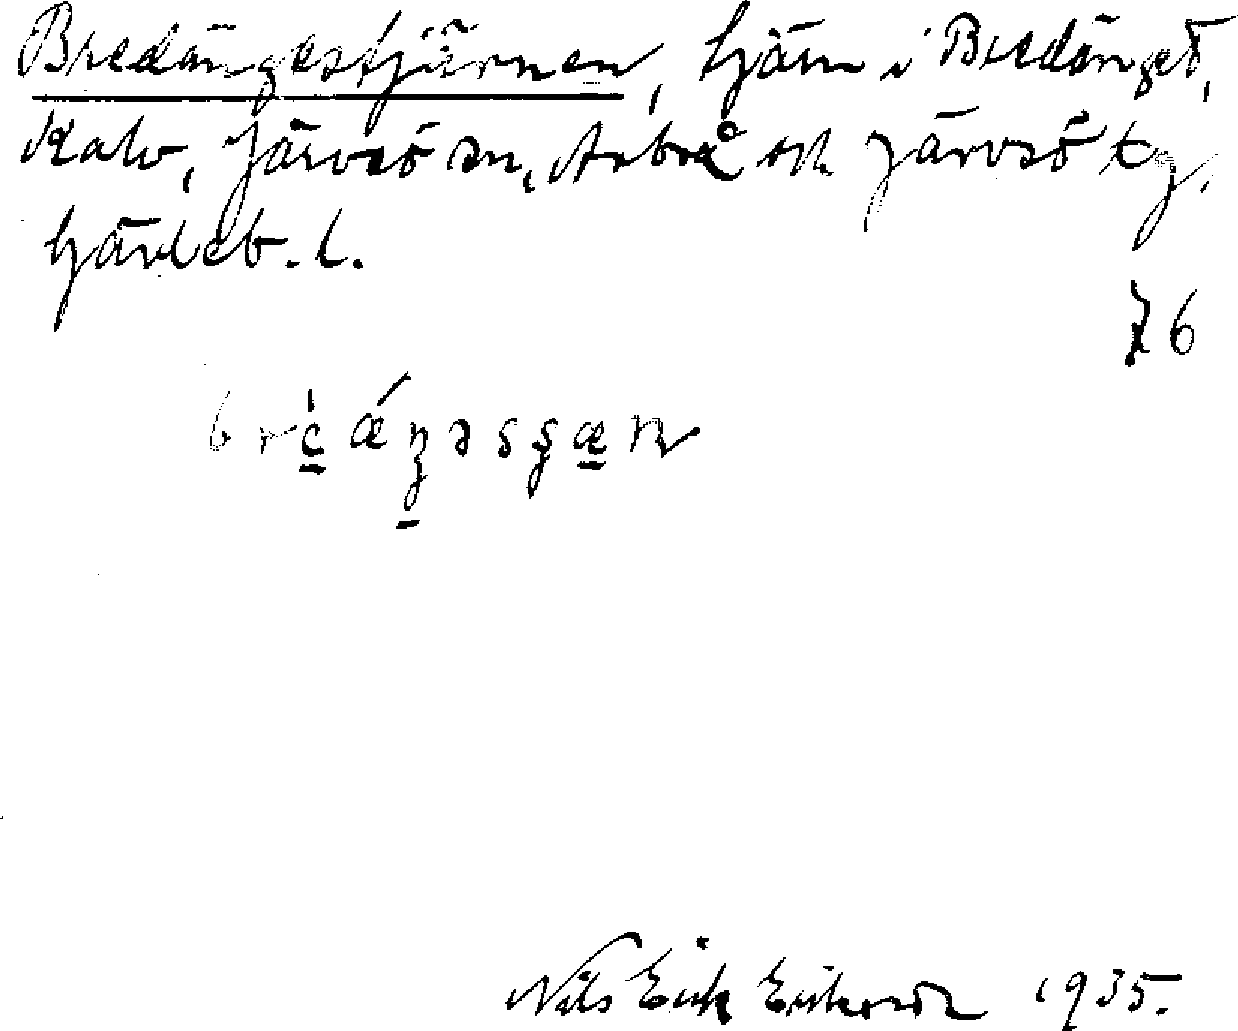 Bredängestjärnen, tjärn i Bredänget,
Kalv, Järvsö sn, Arbrå och Järvsö tg,
Gävleb. l.
76
Nils Erik Eriksson 1935.